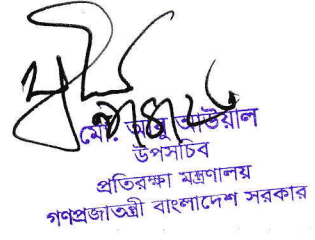 মোঃ আবু আউয়াল
উপসচিব
প্রতিরক্ষা মন্ত্রণালয়
গণপ্রজাতন্ত্রী বাংলাদেশ সরকার